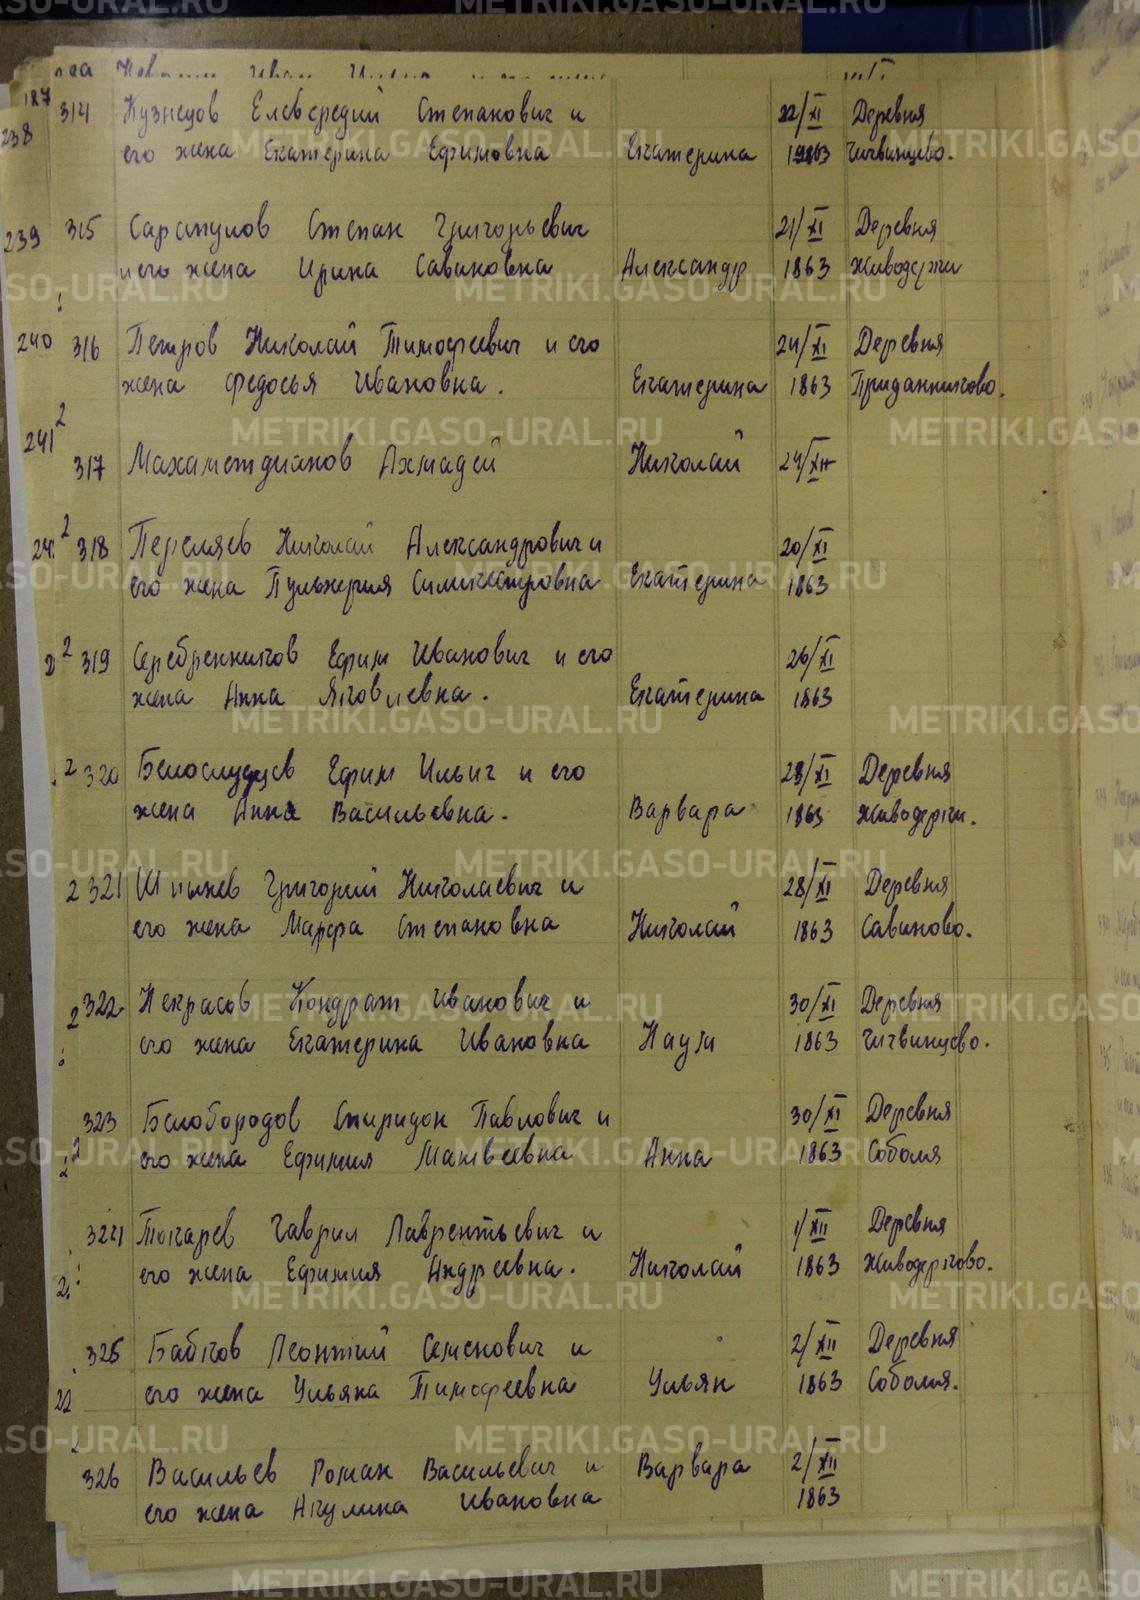 METRIKI.GASO-URAL.RU
187
238 314 Кузнецов Елевсредий Степанович и 22/XI Деревня
его жена Екатерина Ефимовна Екатерина 1863 Чичвинцево.
239 315 Сарапулов Степан Григорьевич 21/XI Деревня
и его жена Ирина Савиновна Александр 1863 Живодерки
240 316 Петров Николай Тимофеевич и его 24/XI Деревня
жена Федосья Ивановна. Екатерина 1863 Приданниково.
241
317 Махаметдианов Ахмадей Николай 24/XII
318 Переляев Николай Александрович и 20/XI
его жена Пульхерия Екатерина 1863
319 Серебренников Ефим Иванович и его 26/XI
жена Анна Яковлевна. Екатерина 1863
320 Белослудцев Ефим Ильич и его 28/XI Деревня
жена Анна Васильевна. Варвара 1863 Живодерки.
321 Григорий Николаевич и 28/XI Деревня
его жена Марфа Степановна Николай 1863 Савиново.
322 Некрасов Кондрат Иванович и 30/XI Деревня
его жена Екатерина Ивановна Наум 1863 Чичвинцево.
323 Белобородов Спиридон Павлович и 30/XI Деревня
его жена Ефимия Матвеевна Анна 1863 Соболя
324 Токарев Гаврил Лаврентьевич и 1/XII Деревня
его жена Ефимия Андреевна. Николай 1863 Живодерково.
325 Бабков Леонтий Семенович и 2/XII Деревня
его жена Ульяна Тимофеевна Ульян 1863 Соболя.
326 Васильев Роман Васильевич и Варвара 2/XII
его жена Акулина Ивановна 1863